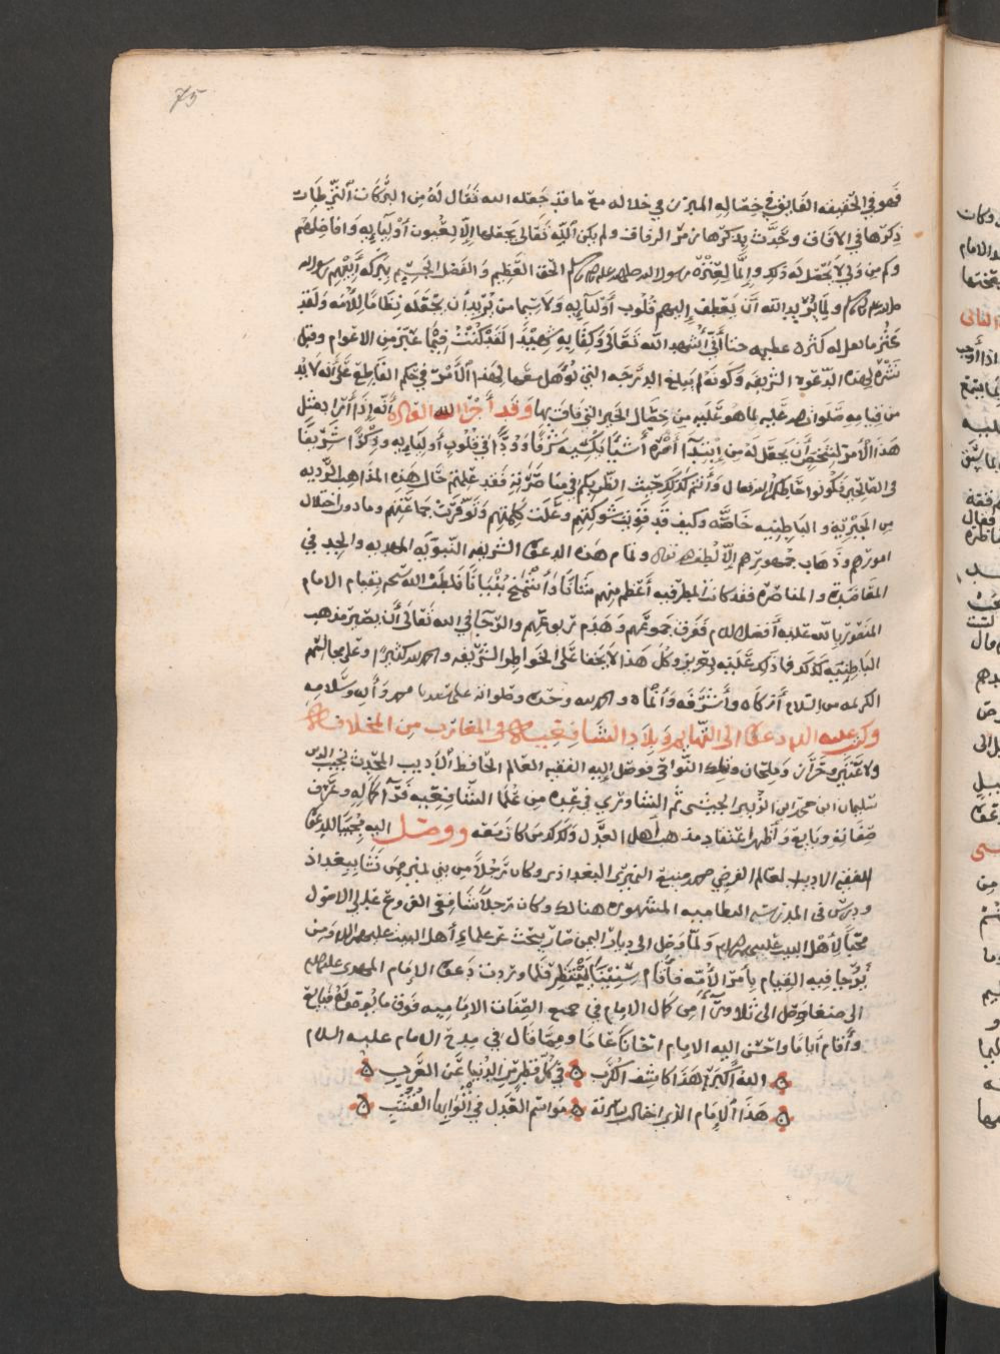 75
فهو في الحقيقه الفايق في خصاله المبرز في خلاله مع ما قد جعله الله تعالى له من البركات التي طاب
ذكرها في الافاق وتحدث بذكرها زمر الرفاق ولم يكن الله تعالى يجعلها إلا لعيون أوليآيه وافاضلهم
وكم من ولي لا يجعل له ذلك وإنما لعترة رسول الله صلى الله عليه وعليهم السلام الحق العظيم والفضل الجسيم ببركة أبيهم رسول الله
صلى الله عليه وعليهم السلام ولما يريد الله أن يعطف إليهم قلوب أوليآيه ولا سيما من يريد أن يجعله نظاما للأمه ولقد
من الاعوام وقبل
نشره لهذه الدعوة الشريفه وكونه لم يبلغ الدرجه التي تؤهل معها لهذا الأمر في حكم القاطع على أنه لا بد
من قيامه صلوات الله عليه لما هو عليه من خصال الخير التي فاق بها وقد أجرا الله العاده أنه إذا أراد بمثل
هذا الأمر لشخص أن يجعل له من إبتدآ أمره أشيا تكسبه شرفا وودا في قلوب أوليايه وذكرا شريفا
في العالمين وأنتم كذلك حيث النظر يكم فقد علمتم حال هذه المذاهب الرديه
من الجبريه والباطنيه خاصه وكيف قد قويت شوكتهم وعلت كلمتهم وتوفرت جماعتهم وما دون اختلال
امورهم وذهاب جمهورهم إلا لطف الله تعالى وتمام هذه الدعوة الشريفه النبويه المهديه والجد في
المقاصده والمناصره فقد كانت المطرفيه أعظم منهم وأشمخ بنيانا فلطف الله بحر بقيام الامام
المنصور بالله عليه أفضل السلام ففرق جموعهم وهدم ربوعهم والرجا في الله تعالى أن يصير مذهب
الباطنيه كذلك فما ذلك عليه بعزيز وكل هذا لا يخفا على الخواطر الشريفه والحمد لله كثيرا وعلى مجالسكم
الكريمه من السلام أزكاه وأشرفه وأنماه والحمد لله وحده وصلواته على سيدنا محمد وآله وسلامه
وكتب عليه السلام دعوة الى التهايم وبلاد الشافعيه في المغارب من المخلافه
وتلك النواحي فوصل إليه الفقيه العالم الحافظ الأديب المحدث نجيب الدين
سليمان ابن محمد ابن الزبير الجيشي ثم الشاوري في عده من علما الشافعيه فرآ كماله وعرف
صفاته وبايع وأظهر اعتقاد مذهب أهل العدل وكذلك من كان معه ووصل اليه مجيبا للدعوة
الفقيه الاديب العالم الفرضي البغداذي وكان رجلا من بني تميم نشا ببغداد
ودرس في المدرسه النظاميه المشهوره هنالك وكان رجلا شافعي الفروع عدلي الاصول
محبا لأهل البيت عليهم السلام ولما وصل الى ديار اليمن صار يبحث عن علماء أهل البيت عليهم السلام ومن
يرجا فيه القيام بأمر الأمه فأقام سنينا ينتظر فلما وردت دعوة الإمام المهدي عليه السلام
الى صنعا وصل الى ثلا ورآ من كمال الامام في جميع الصفات الاماميه فوق ما يوصف له فبايع
وأقام أياما واحسن اليه الامام احسانا عاما ومما قال في مدح الامام عليه السلام
الله أكبر هذا كاشف الكرب في كل قطر من الدنيا عن العرب
هذا الإمام الذي مواسم العدل في أثوابها القشب